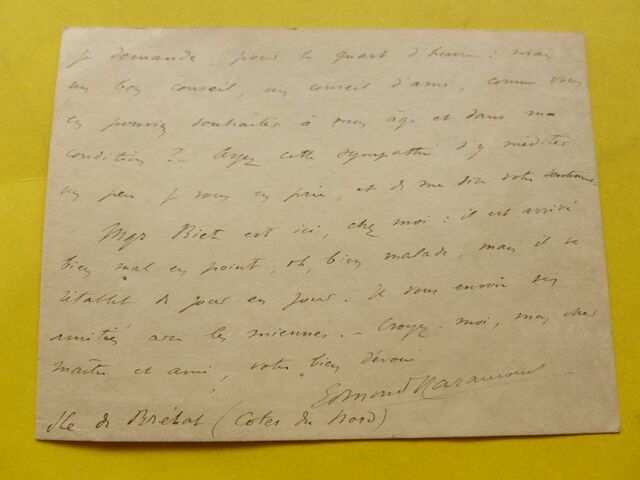 je demande.. pour le quart d'heure : mais
un bon conseil, un conseil d'ami, comme vous
en pouviez souhaiter à mon âge et dans ma
condition ?.. Ayez cette sympathie d'y méditer
un peu, je vous en prie, et de me dire votre sentiment.
Mgr Biet est ici, chez moi : il est arrivé
bien mal en point, oh, bien malade, mais il se
rétablit de jour en jour. Je vous envoie ses
amitiés avec les miennes. – Croyez-moi, mon cher
maître et ami, votre bien dévoué
Edmond Haraucourt
Ile de Bréhat (Côtes du Nord)